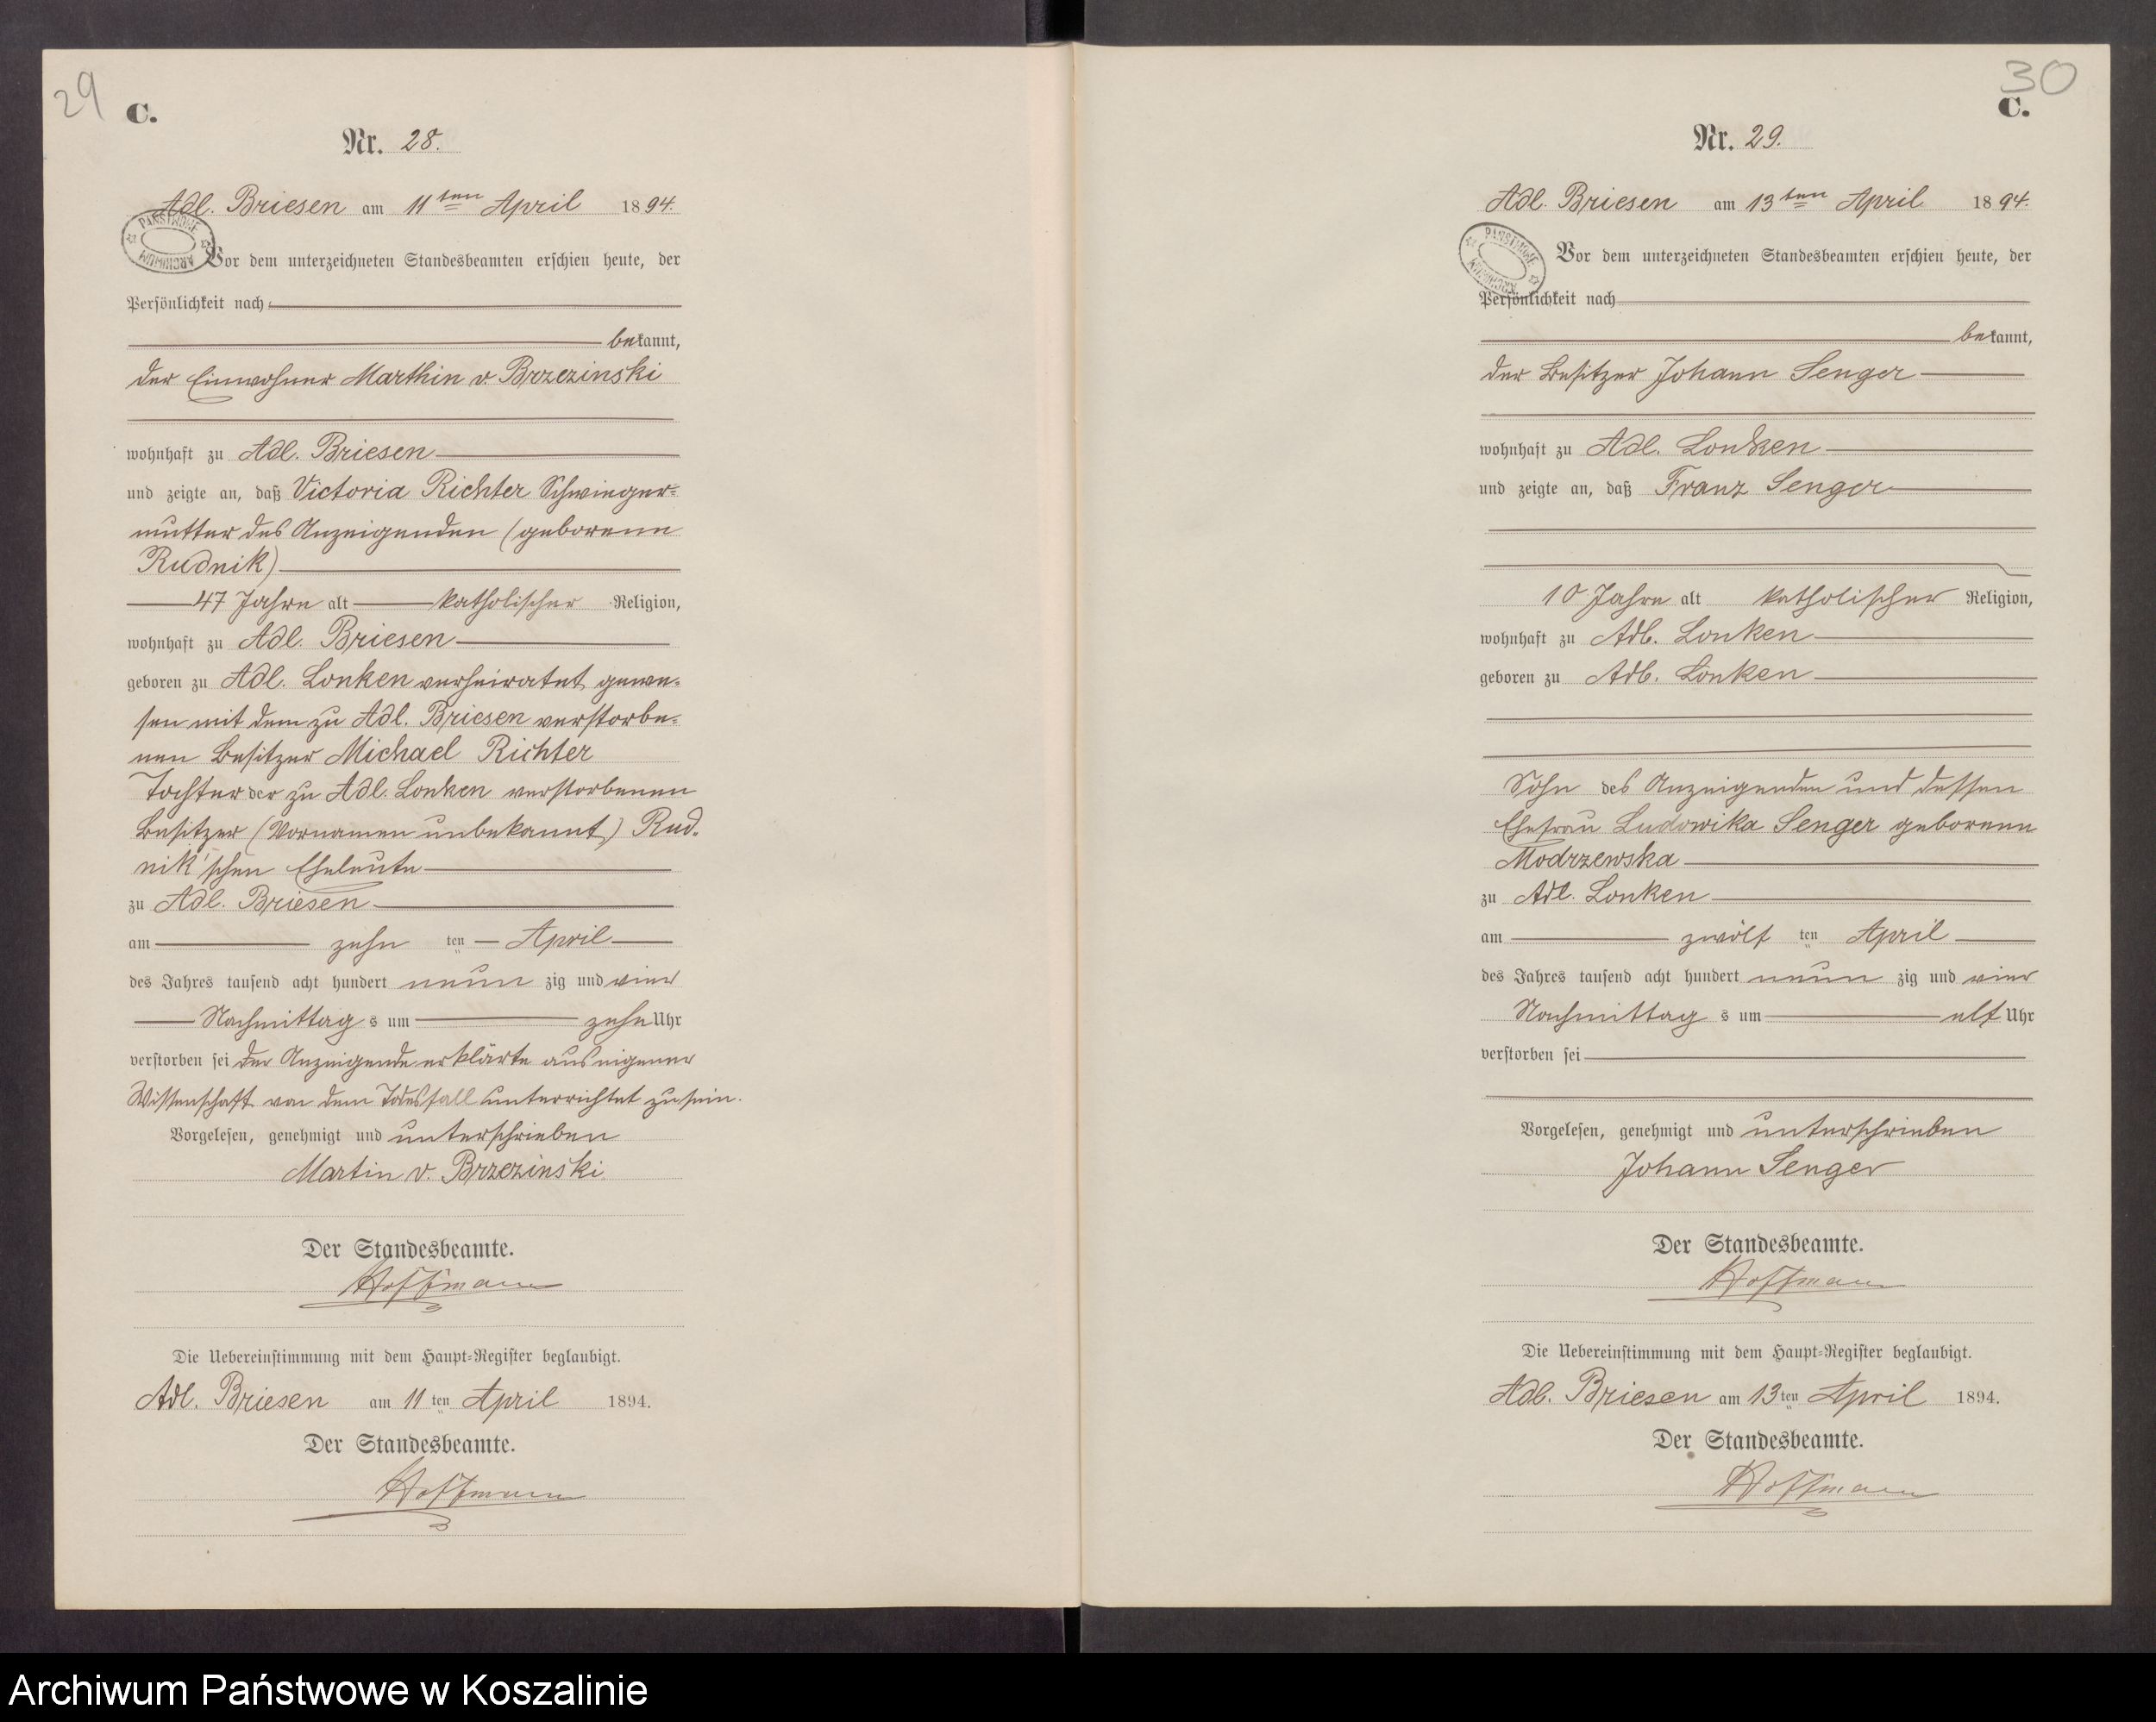 29
C.
Nr. 28.
Adl. Briesen am 11ten April 1894.
PAŃSTWOWE ARCHIWUM
Vor dem unterzeichneten Standesbeamten erschien heute, der
Persönlichkeit nach
bekannt,
der Einwohner Marthin v. Brzezinski
wohnhaft zu Adl. Briesen
und zeigte an, daß Victoria Richter Schwieger-
mutter des Anzeigenden (geborene
Rudnik)
47 Jahre alt katholischer Religion,
wohnhaft zu Adl. Briesen
geboren zu Adl. Lonken verheiratet gewe-
sen mit dem zu Adl. Briesen verstorbe-
nen Besitzer Michael Richter
Tochter der zu Adl. Lonken verstorbenen
Besitzer (Vornamen unbekannt) Rud-
nik'schen Eheleute
zu Adl. Briesen
am zehn ten April
des Jahres tausend acht hundert neun zig und vier
Nachmittag s um zehn Uhr
verstorben sei der Anzeigende erklärte aus eigener
Wissenschaft von dem Todesfall unterrichtet zu sein.
Vorgelesen, genehmigt und unterschrieben
Martin v. Brzezinski.
Der Standesbeamte.
Hoffmann
Die Uebereinstimmung mit dem Haupt-Register beglaubigt.
Adl. Briesen am 11 ten April 1894.
Der Standesbeamte.
Hoffmann
30
C.
Nr. 29.
Adl. Briesen am 13ten April 1894.
PAŃSTWOWE ARCHIWUM
Vor dem unterzeichneten Standesbeamten erschien heute, der
Persönlichkeit nach
bekannt,
der Besitzer Johann Senger
wohnhaft zu Adl. Lonken
und zeigte an, daß Franz Senger
10 Jahre alt katholischer Religion,
wohnhaft zu Adl. Lonken
geboren zu Adl. Lonken
Sohn des Anzeigenden und dessen
Ehefrau Ludowika Senger geborene
Modrzewska
zu Adl. Lonken
am zwölf ten April
des Jahres tausend acht hundert neun zig und vier
Nachmittag s um elf Uhr
verstorben sei
Vorgelesen, genehmigt und unterschrieben
Johann Senger
Der Standesbeamte.
Hoffmann
Die Uebereinstimmung mit dem Haupt-Register beglaubigt.
Adl. Briesen am 13 ten April 1894.
Der Standesbeamte.
Hoffmann
Archiwum Państwowe w Koszalinie